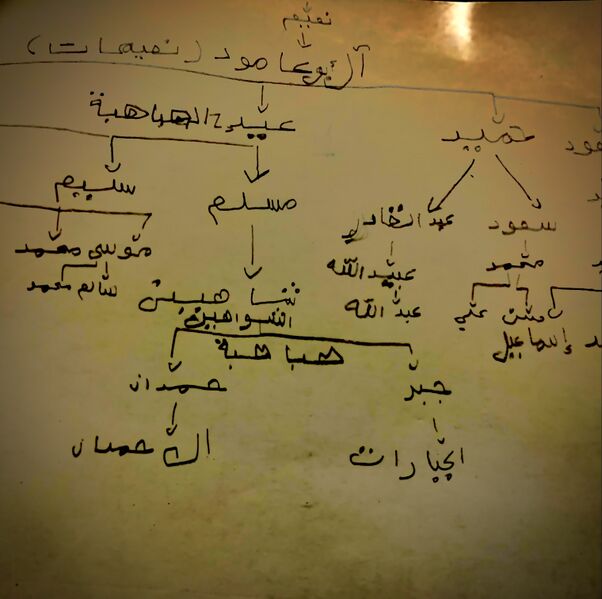 نعيم
آل أبو عامود (نعيمات)
عبيد الصباهبة
حميد
سليم
مسلم
عبد القادر
سعود
موسى محمد
عبيد الله
محمد
سالم محمد
شاهين
عبد الله
علي
حسن
الشواهين
إسماعيل
صباهبة
حمدان
جبر
ال حمدان
الجبارات